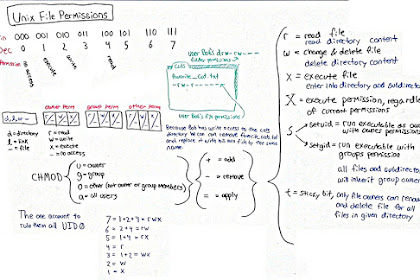 Unix File Permissions
000 001 010 011 100 101 110 111
Dec 0 1 2 3 4 5 6 7
no access
execute
write
read
User Bob's drw-rw----
folder permissions
cats
favorite_cat.txt
-rw-r-----
User Bob's file permissions
Because Bob has write access to the cats
directory he can remove favorite_cat.txt
and replace it with his own file by the same
name.
owner perm group perm other perm
d = directory
l = link
- = file
r = read
w = write
x = execute
- = no access
CHMOD
u = owner
g = group
o = other (not owner or group members)
a = all users
+ = add
- = remove
= = apply
r = read file
read directory content
w = change & delete file
delete directory content
x = execute file
enter into directory and subdirect
X = execute permission, regardle
of current permissions
S
Setuid = run executable as
with owner permissions
Setgid = run executable with
groups permission
all files and subdirect
will inherit group owner
t = sticky bit, only file owners can rename
and delete file for all
files in given directory
The one account to
rule them all UID 0
7 = 1+2+4 = rwx
6 = 2+4 = rw
5 = 1+4 = rx
4 = r
3 = 1+2 = wx
2 = w
1 = x